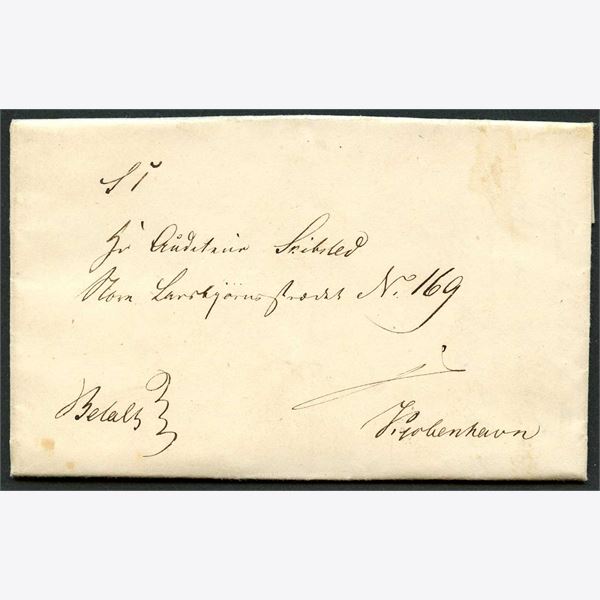 S T
Hr Auditeur Skibsted
Store Larsbjørnsstrædet No. 169
i
Kjøbenhavn
Betalt